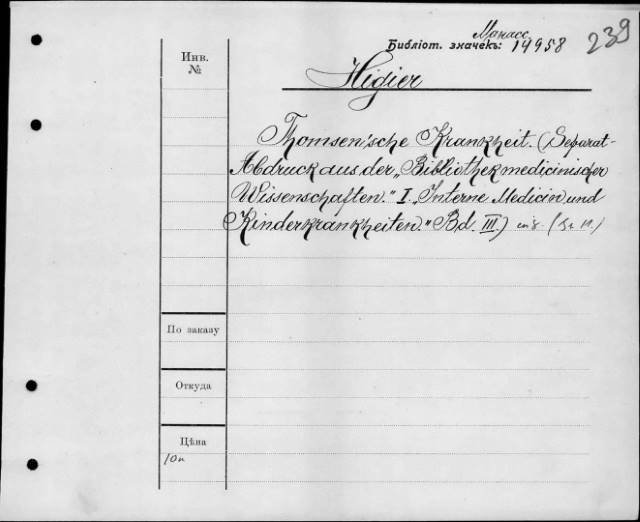 Монасс.
239
Библіот. значекъ: 14958
Инв.
№
Higier
Thomsen'sche Krankheit. (Separat-
Abdruck aus der „Bibliothek medicinischer
Wissenschaften." I. Interne Medicin und
Kinderkrankheiten." Bd. III.)
По заказу
Откуда
Цѣна
10к